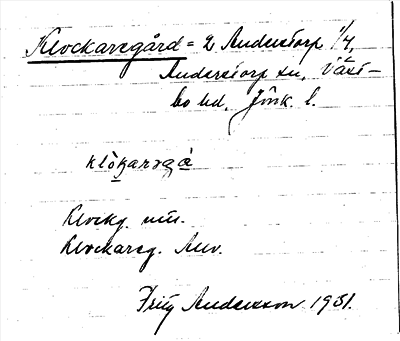 Klockaregård = 2 Anderstorp 1/4,
Anderstorp sn, Väst-
bo hd, Jönk. l.
klòkarəgà
Klockg. mtl.
Klockareg. Auv.
Frity Andersson 1931.